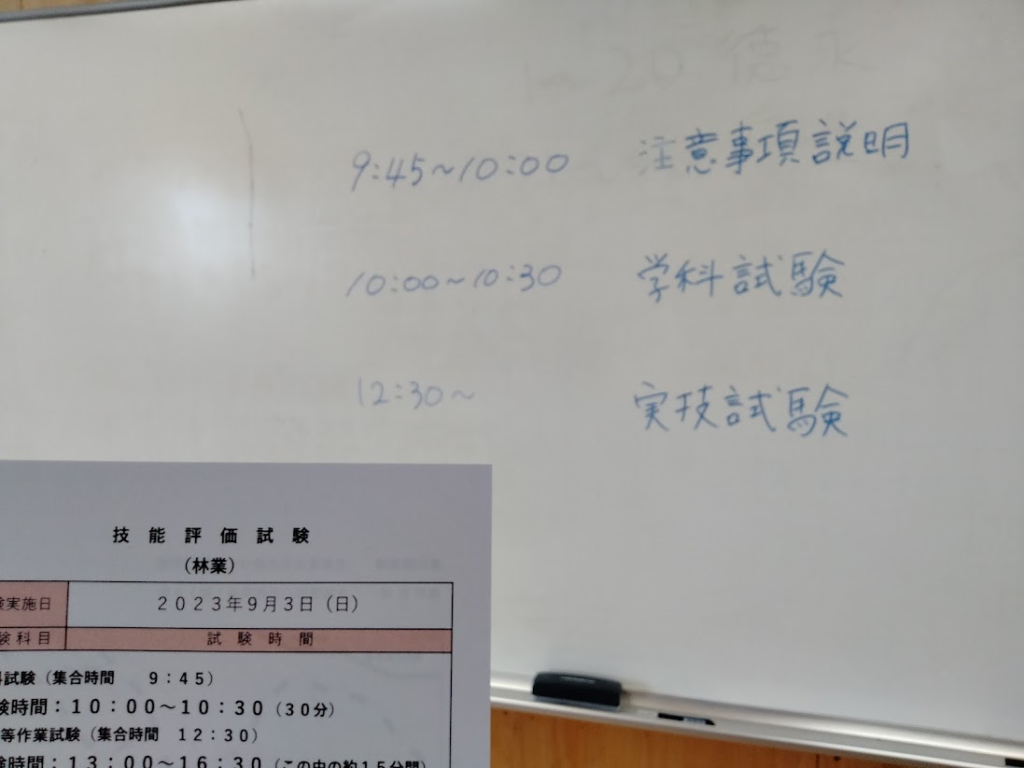 1~20 徳永
9:45~10:00 注意事項説明
10:00~10:30 学科試験
12:30~ 実技試験
技能評価試験
(林業)
験実施日 2023年9月3日(日)
験科目 試験時間
試験(集合時間 9:45)
験時間:10:00~10:30(30分)
等作業試験(集合時間 12:30)
験時間:13:00~16:30(この中の約15分間)